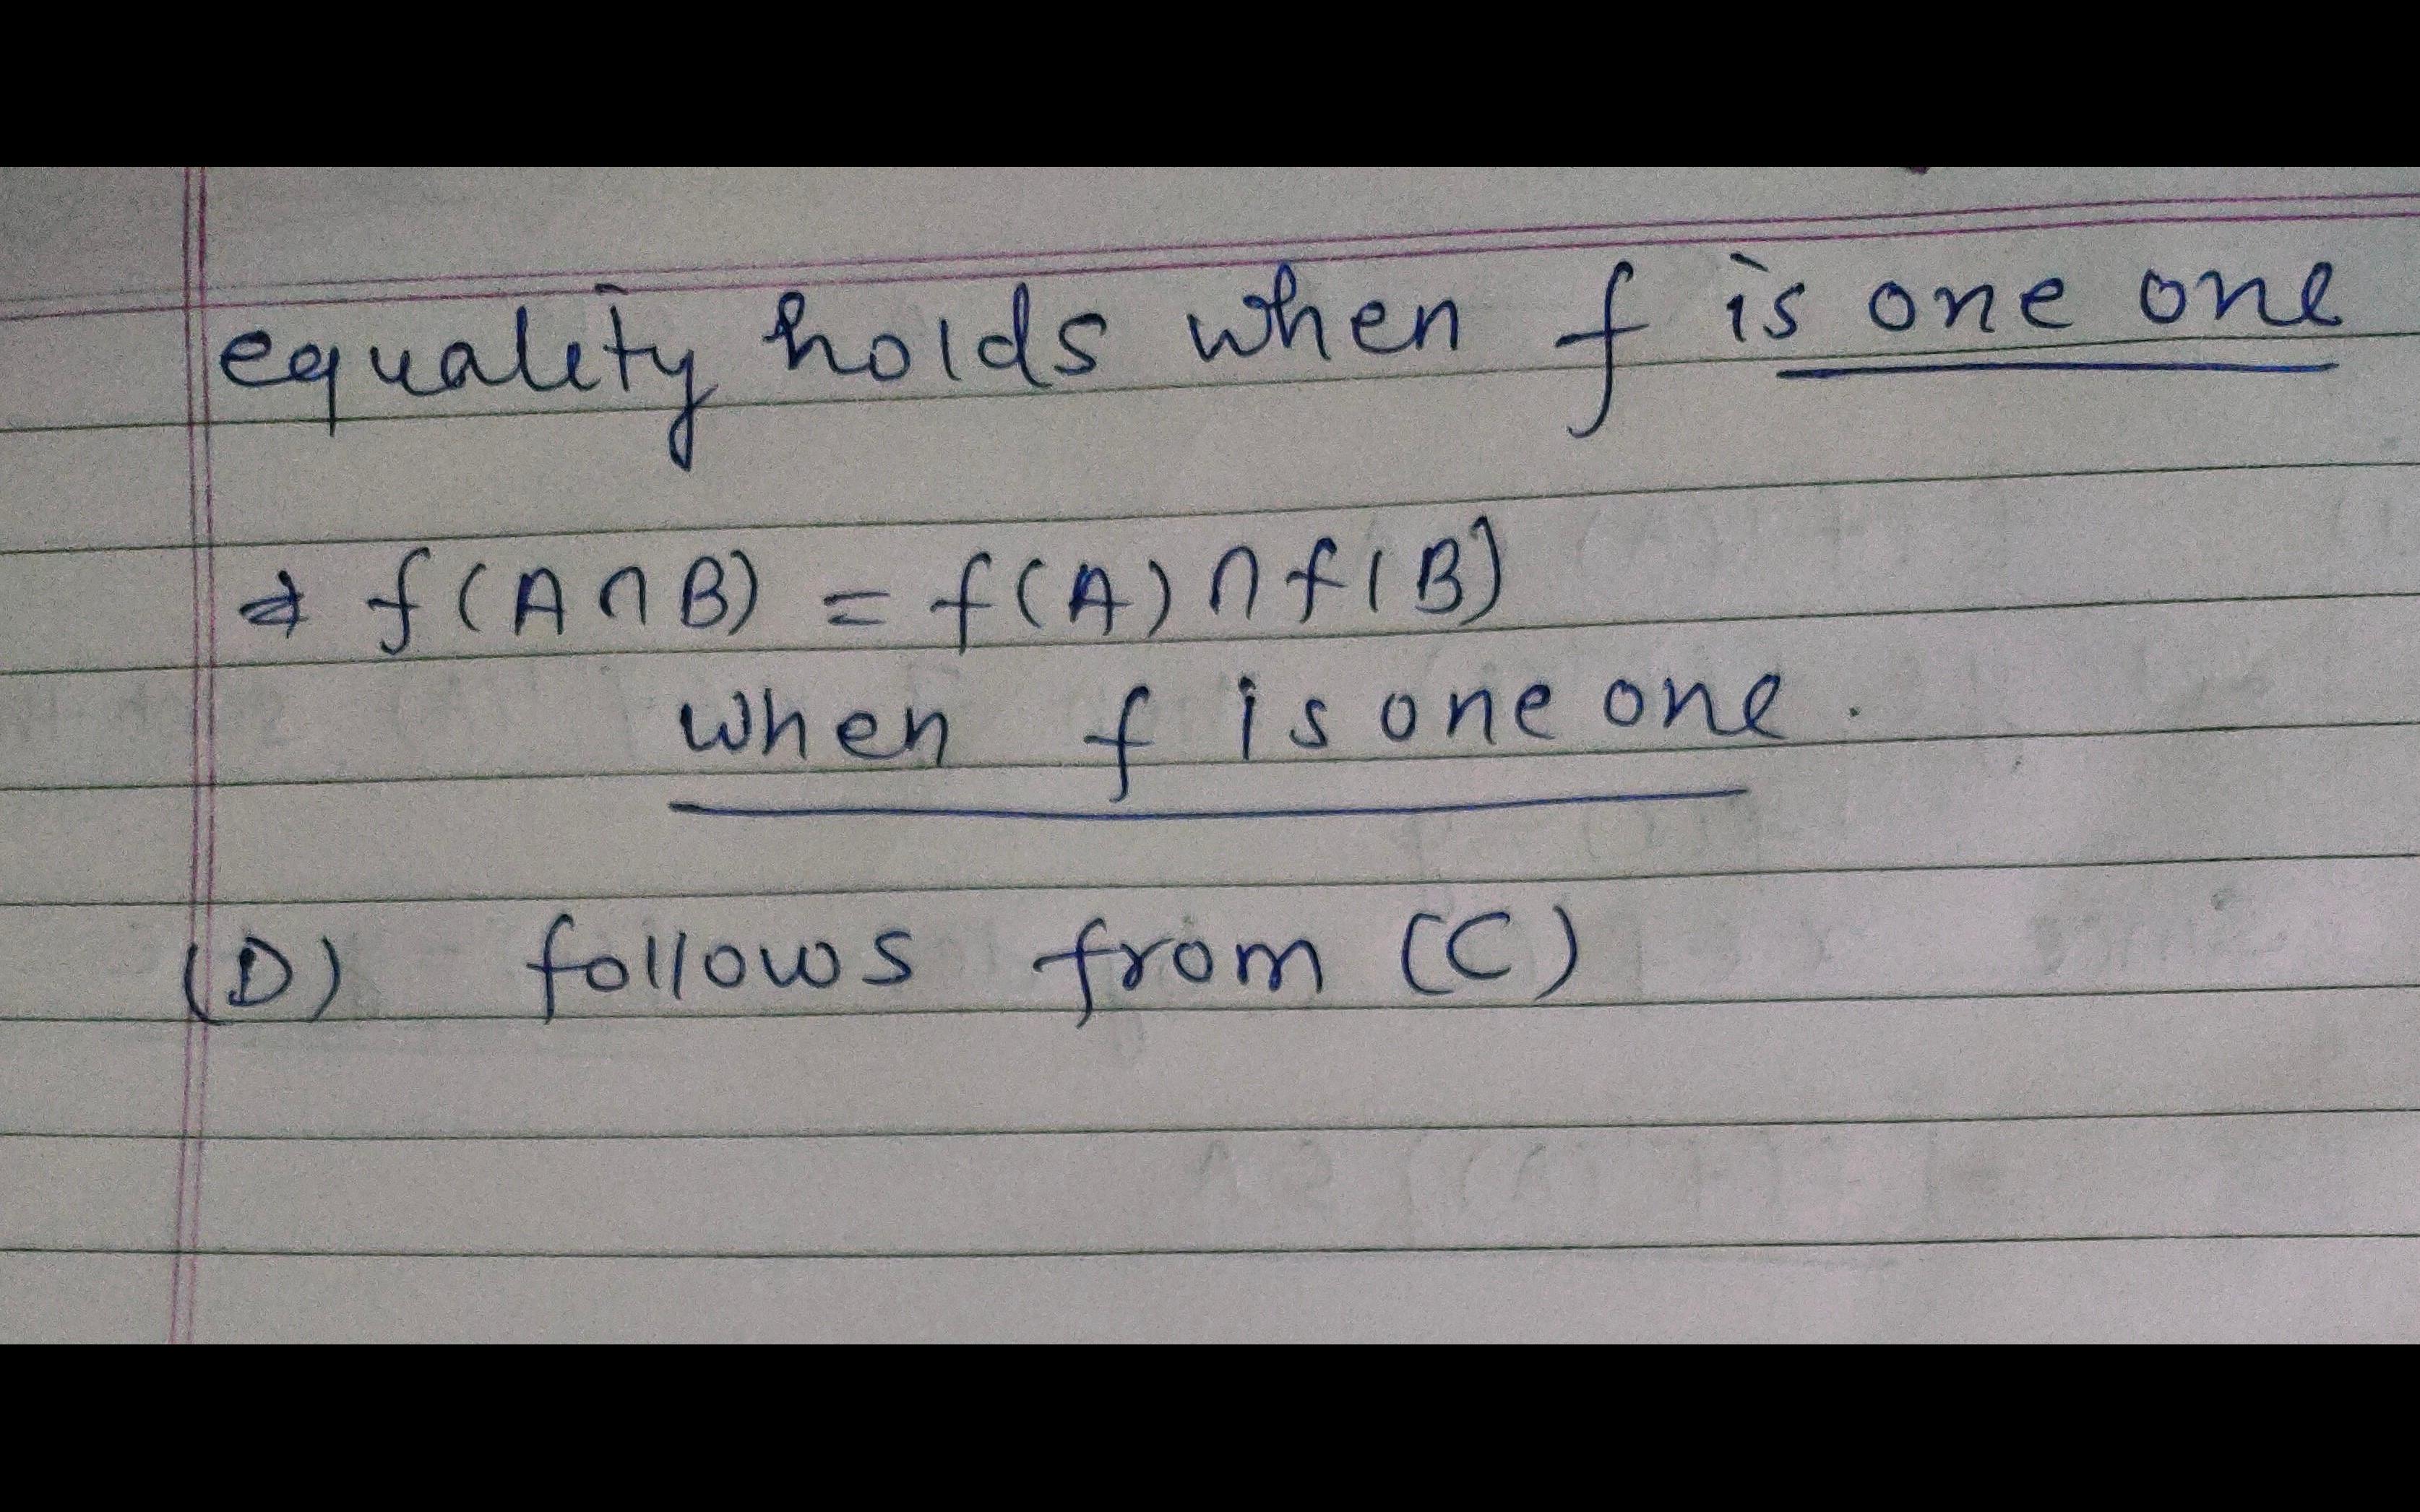 equality holds when f is one one
⇒ f(A∩B) = f(A)∩f(B)
when f is one one.
(D) follows from (C)